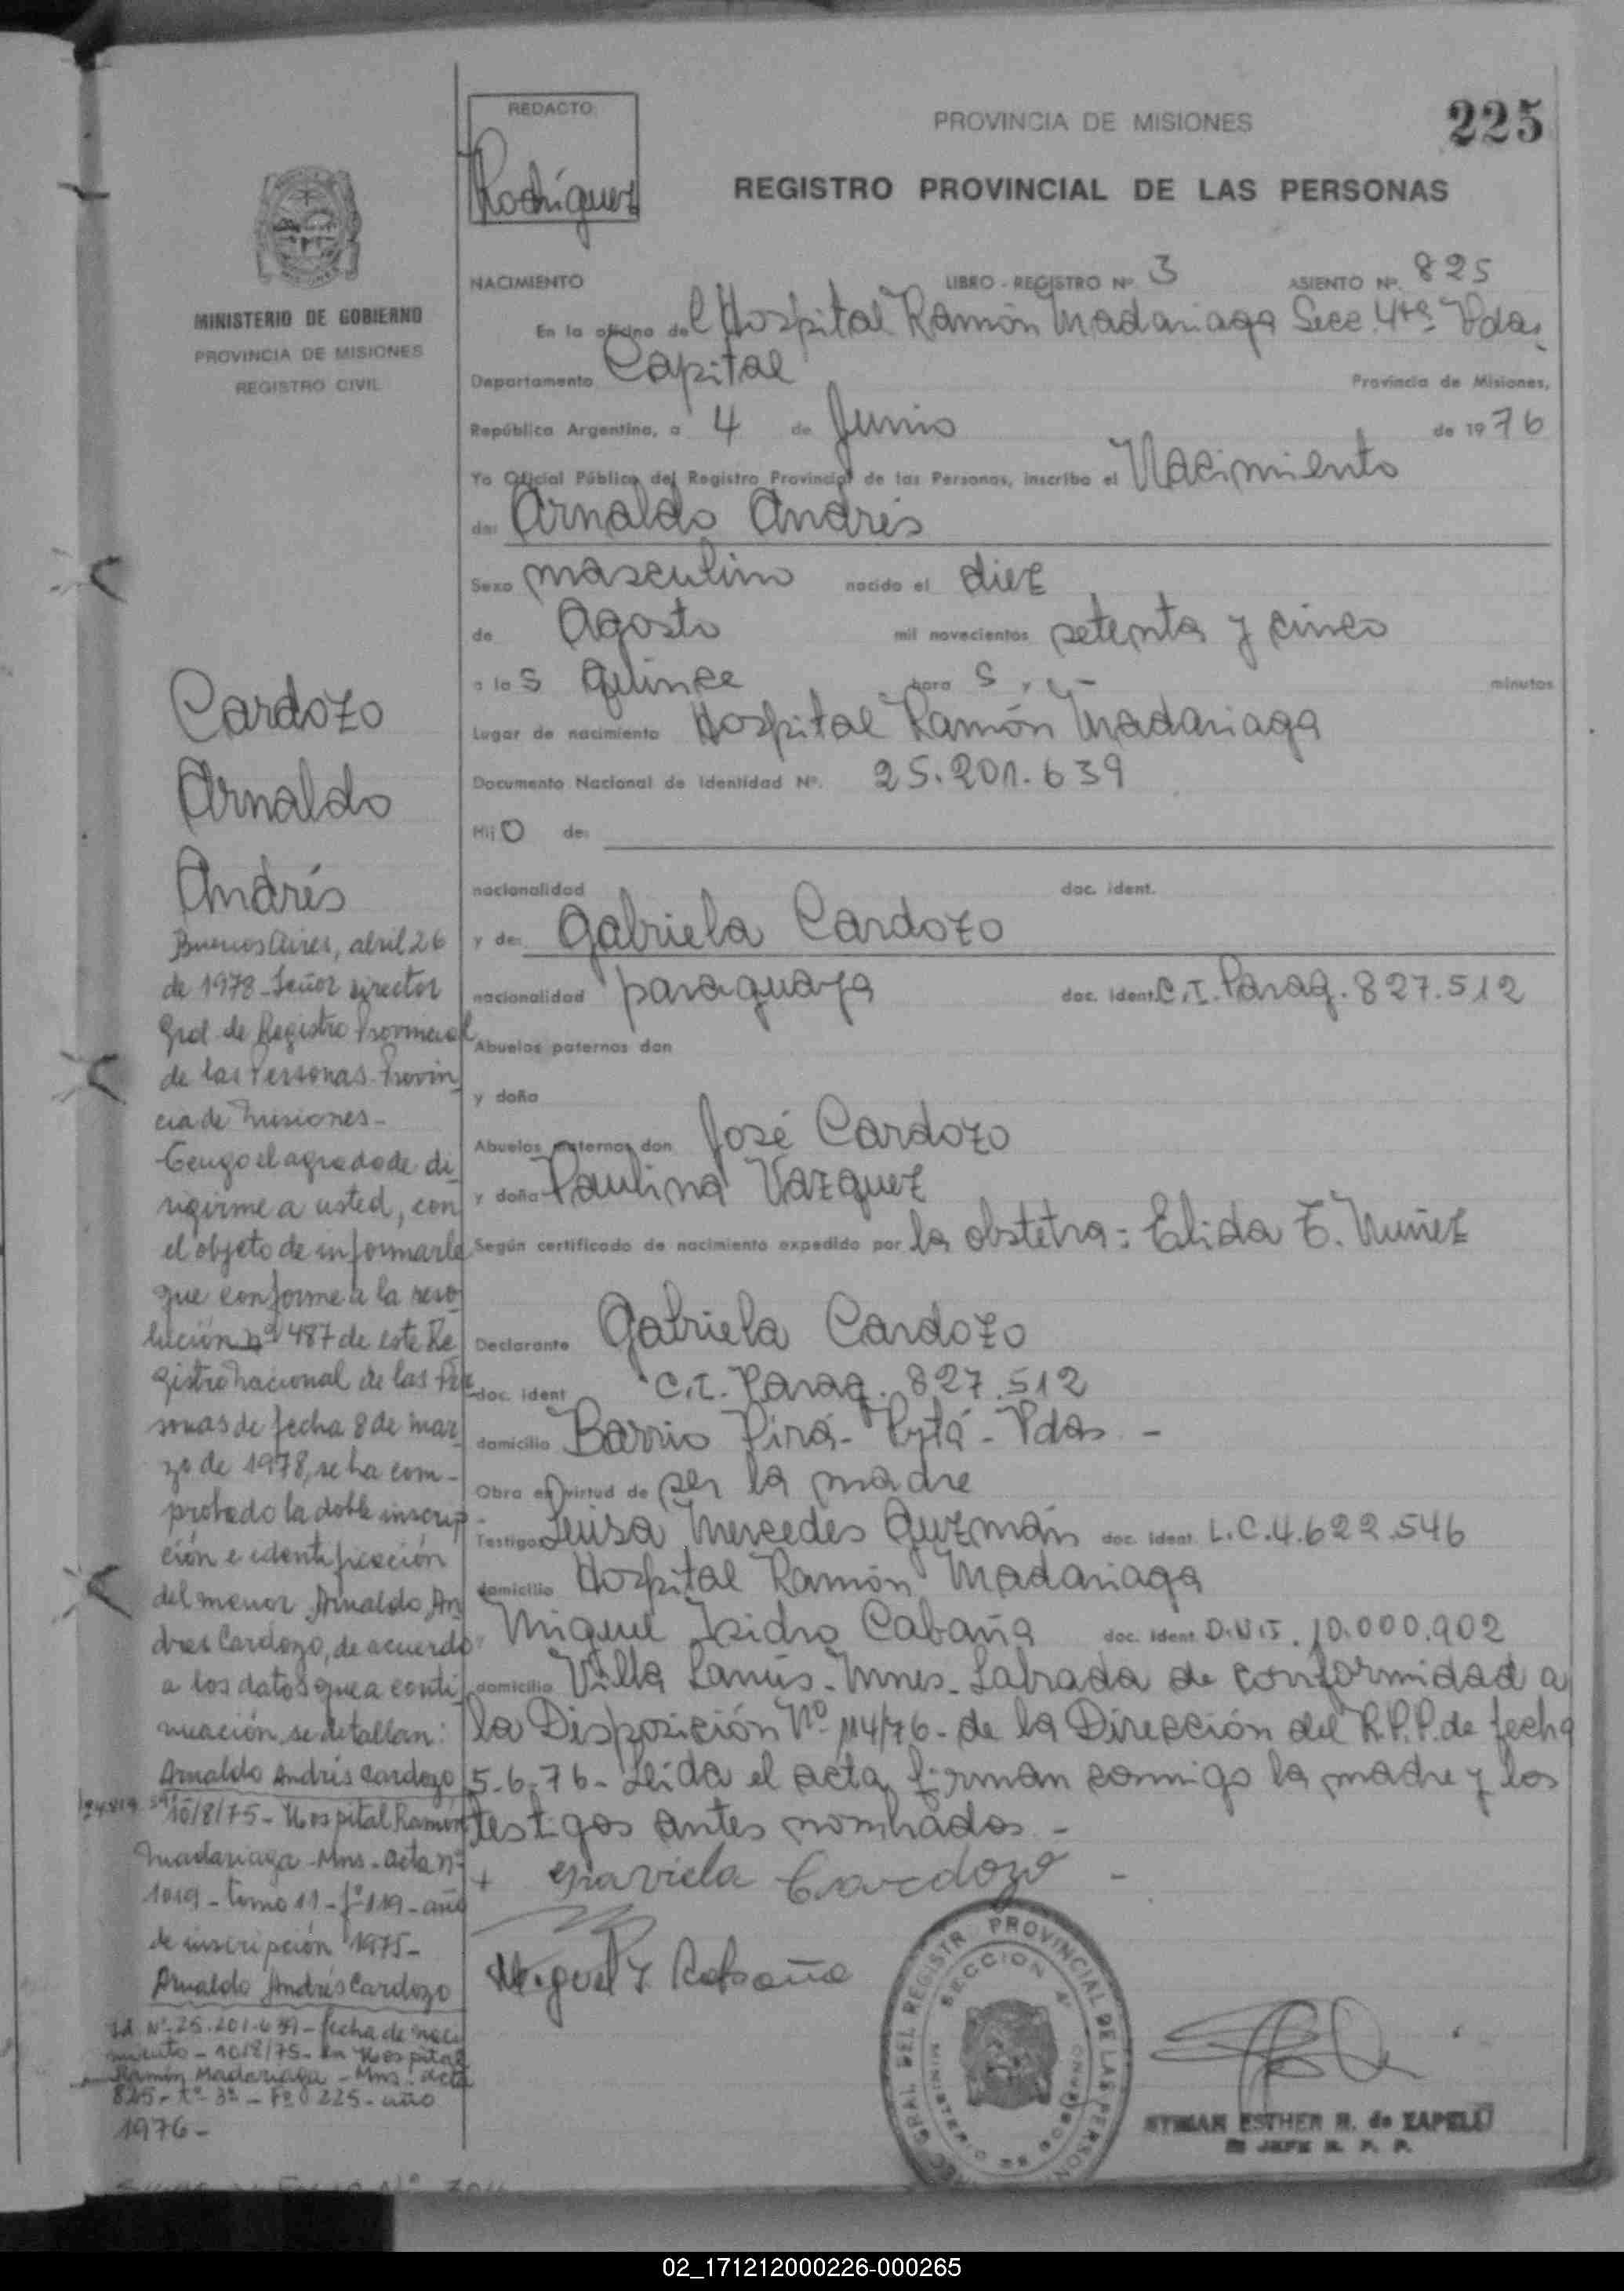 REDACTO:
Rodríguez
PROVINCIA DE MISIONES
225
REGISTRO PROVINCIAL DE LAS PERSONAS
MINISTERIO DE GOBIERNO
PROVINCIA DE MISIONES
REGISTRO CIVIL
NACIMIENTO LIBRO - REGISTRO Nº 3 ASIENTO Nº. 825
En la oficina del Hospital Ramón Madariaga Secc. 4ta. Pdas.
Departamento Capital Provincia de Misiones,
República Argentina, a 4 de Junio de 1976
Yo Oficial Público del Registro Provincial de las Personas, inscribo el Nacimiento
de: Arnaldo Andrés
Sexo masculino nacido el diez
de Agosto mil novecientos setenta y cinco
a las quince horas y minutos
Lugar de nacimiento Hospital Ramón Madariaga
Documento Nacional de Identidad Nº. 25.201.639
Hijo de:
nacionalidad doc. ident.
y de: Gabriela Cardozo
nacionalidad paraguaya doc. ident. C.I. Parag. 827.512
Abuelos paternos don
y doña
Abuelos maternos don José Cardozo
y doña Paulina Vazquez
Según certificado de nacimiento expedido por la obstetra: Elida E. Nuñez
Declarante Gabriela Cardozo
doc. ident C.I. Parag. 827.512
domicilio Barrio Pirá-Pytá-Pdas -
Obra en virtud de ser la madre
Testigos Luisa Mercedes Guzmán doc. ident. L.C.4.622.546
domicilio Hospital Ramón Madariaga
Miguel Isidro Cabaña doc. ident. D.N.I. 10.000.902
domicilio Villa Lanús-Mnes-Labrada de conformidad a
la Disposición Nº 114/76- de la Dirección del R.P.P. de fecha
5.6.76- Leída el acta firman conmigo la madre y los
testigos antes nombrados -
+ Graviela Cardozo -
Miguel I Cabaña
Cardozo
Arnaldo
Andrés
Buenos Aires, abril 26
de 1978-Señor Director
Gral de Registro Provincial
de las Personas-Provin
cia de Misiones-
-Tengo el agrado de di
rigirme a usted, con
el objeto de informarle
que conforme a la reso
lución nº 487 de este Re
gistro Nacional de las Per
sonas de fecha 8 de mar
zo de 1978, se ha com-
probado la doble inscrip-
ción e identificación
del menor Arnaldo An
dres Cardozo, de acuerdo
a los datos que a conti
nuación, se detallan:
Arnaldo Andrés Cardozo
10/8/75- Hospital Ramón
Madariaga-Mns-acta nº
1019-tomo 11-fº 119-año
de inscripción 1975-
Arnaldo Andrés Cardozo
Nº 25.201.639-fecha de naci
miento-10/8/75-en Hospital
Ramón Madariaga-Mns-acta
825-tº 3º-Fº 225-año
1976-
REGISTR PROVINCIAL DE LAS PERSON
SECCION 4ª
ESTHER R. de ZAPELLI
JEFE R. P. P.
02_171212000226-000265